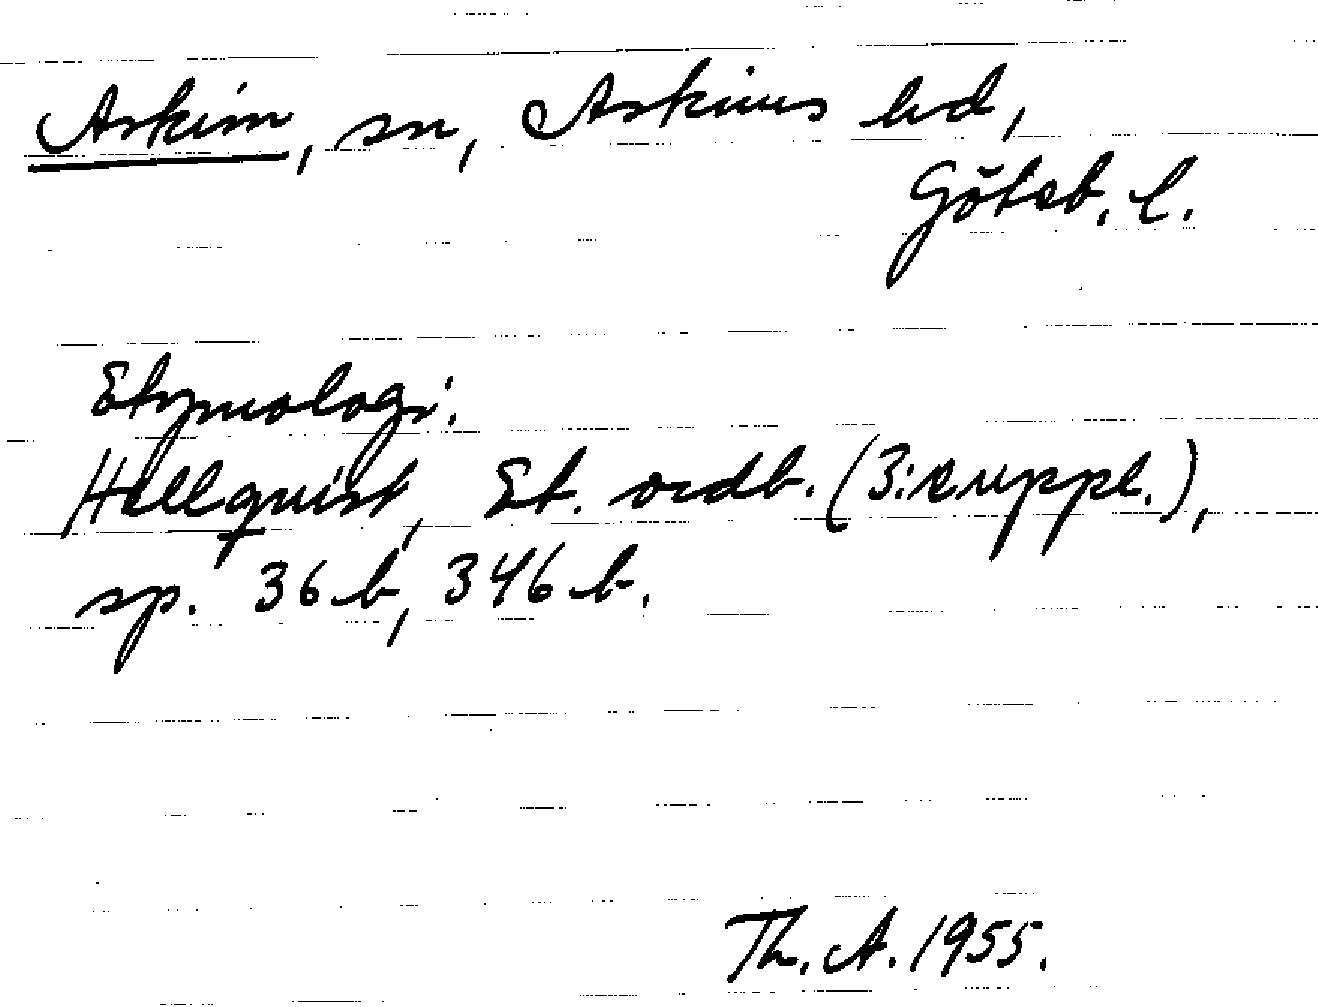 Askim, sn, Askims hd,
Göteb. l.
Etymologi:
Hellquist, Et. ordb. (3:e uppl.),
sp. 36 b, 346 b.
Th. A. 1955.